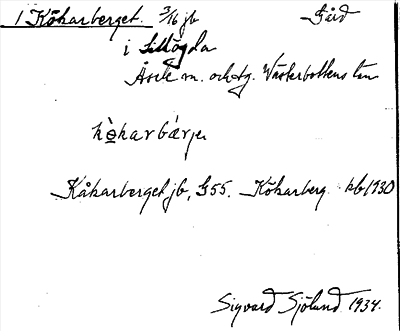 1 Kökarberget. 3/16 jb Gård
i Lillögda
Åsele sn. och tg. Västerbottens län
kò̤karbær̀je
Kåkarberget jb, G55. Kökarberg. kb 1930
Sigvard Sjölund 1934.